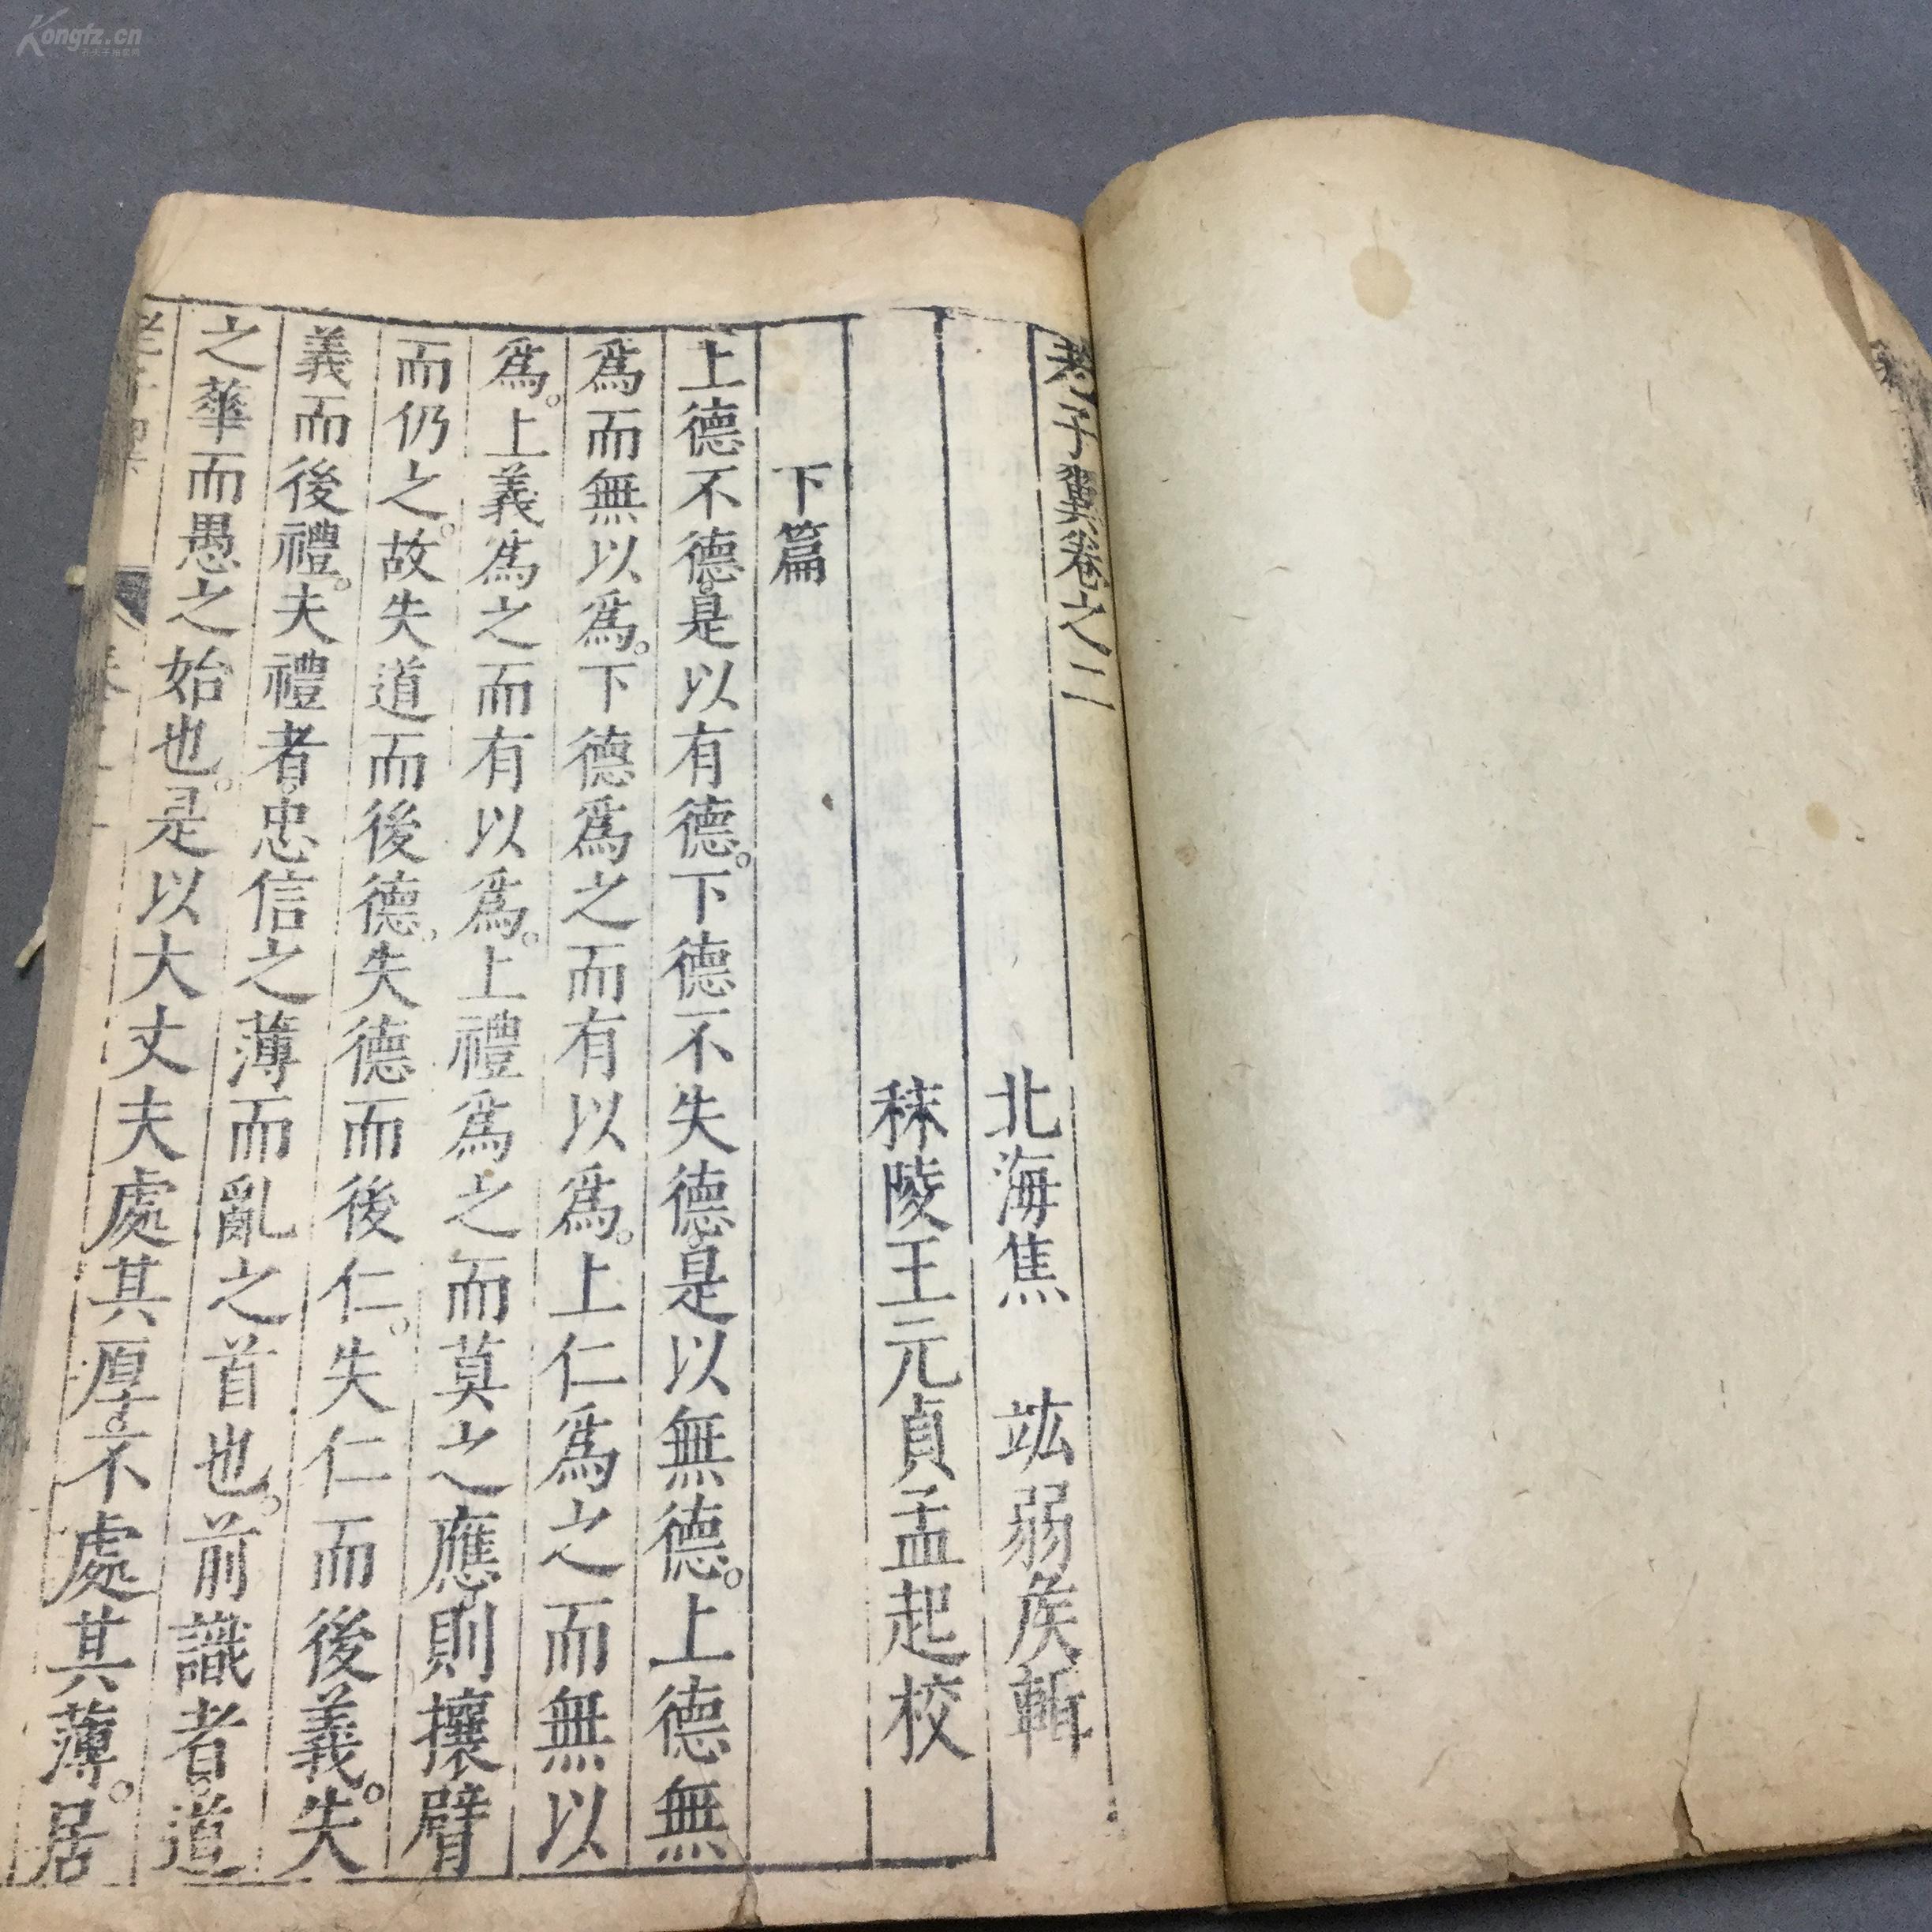 Kongfz.cn
老子翼卷之二
北海焦　竑弱侯輯
秣陵王元貞孟起校
下篇
上德不德。是以有德。下德不失德。是以無德。上德無
為而無以為。下德為之而有以為。上仁為之而無以
為。上義為之而有以為。上禮為之而莫之應。則攘臂
而仍之。故失道而後德。失德而後仁。失仁而後義。失
義而後禮。夫禮者。忠信之薄而亂之首也。前識者。道
之華而愚之始也。是以大丈夫處其厚。不處其薄。居